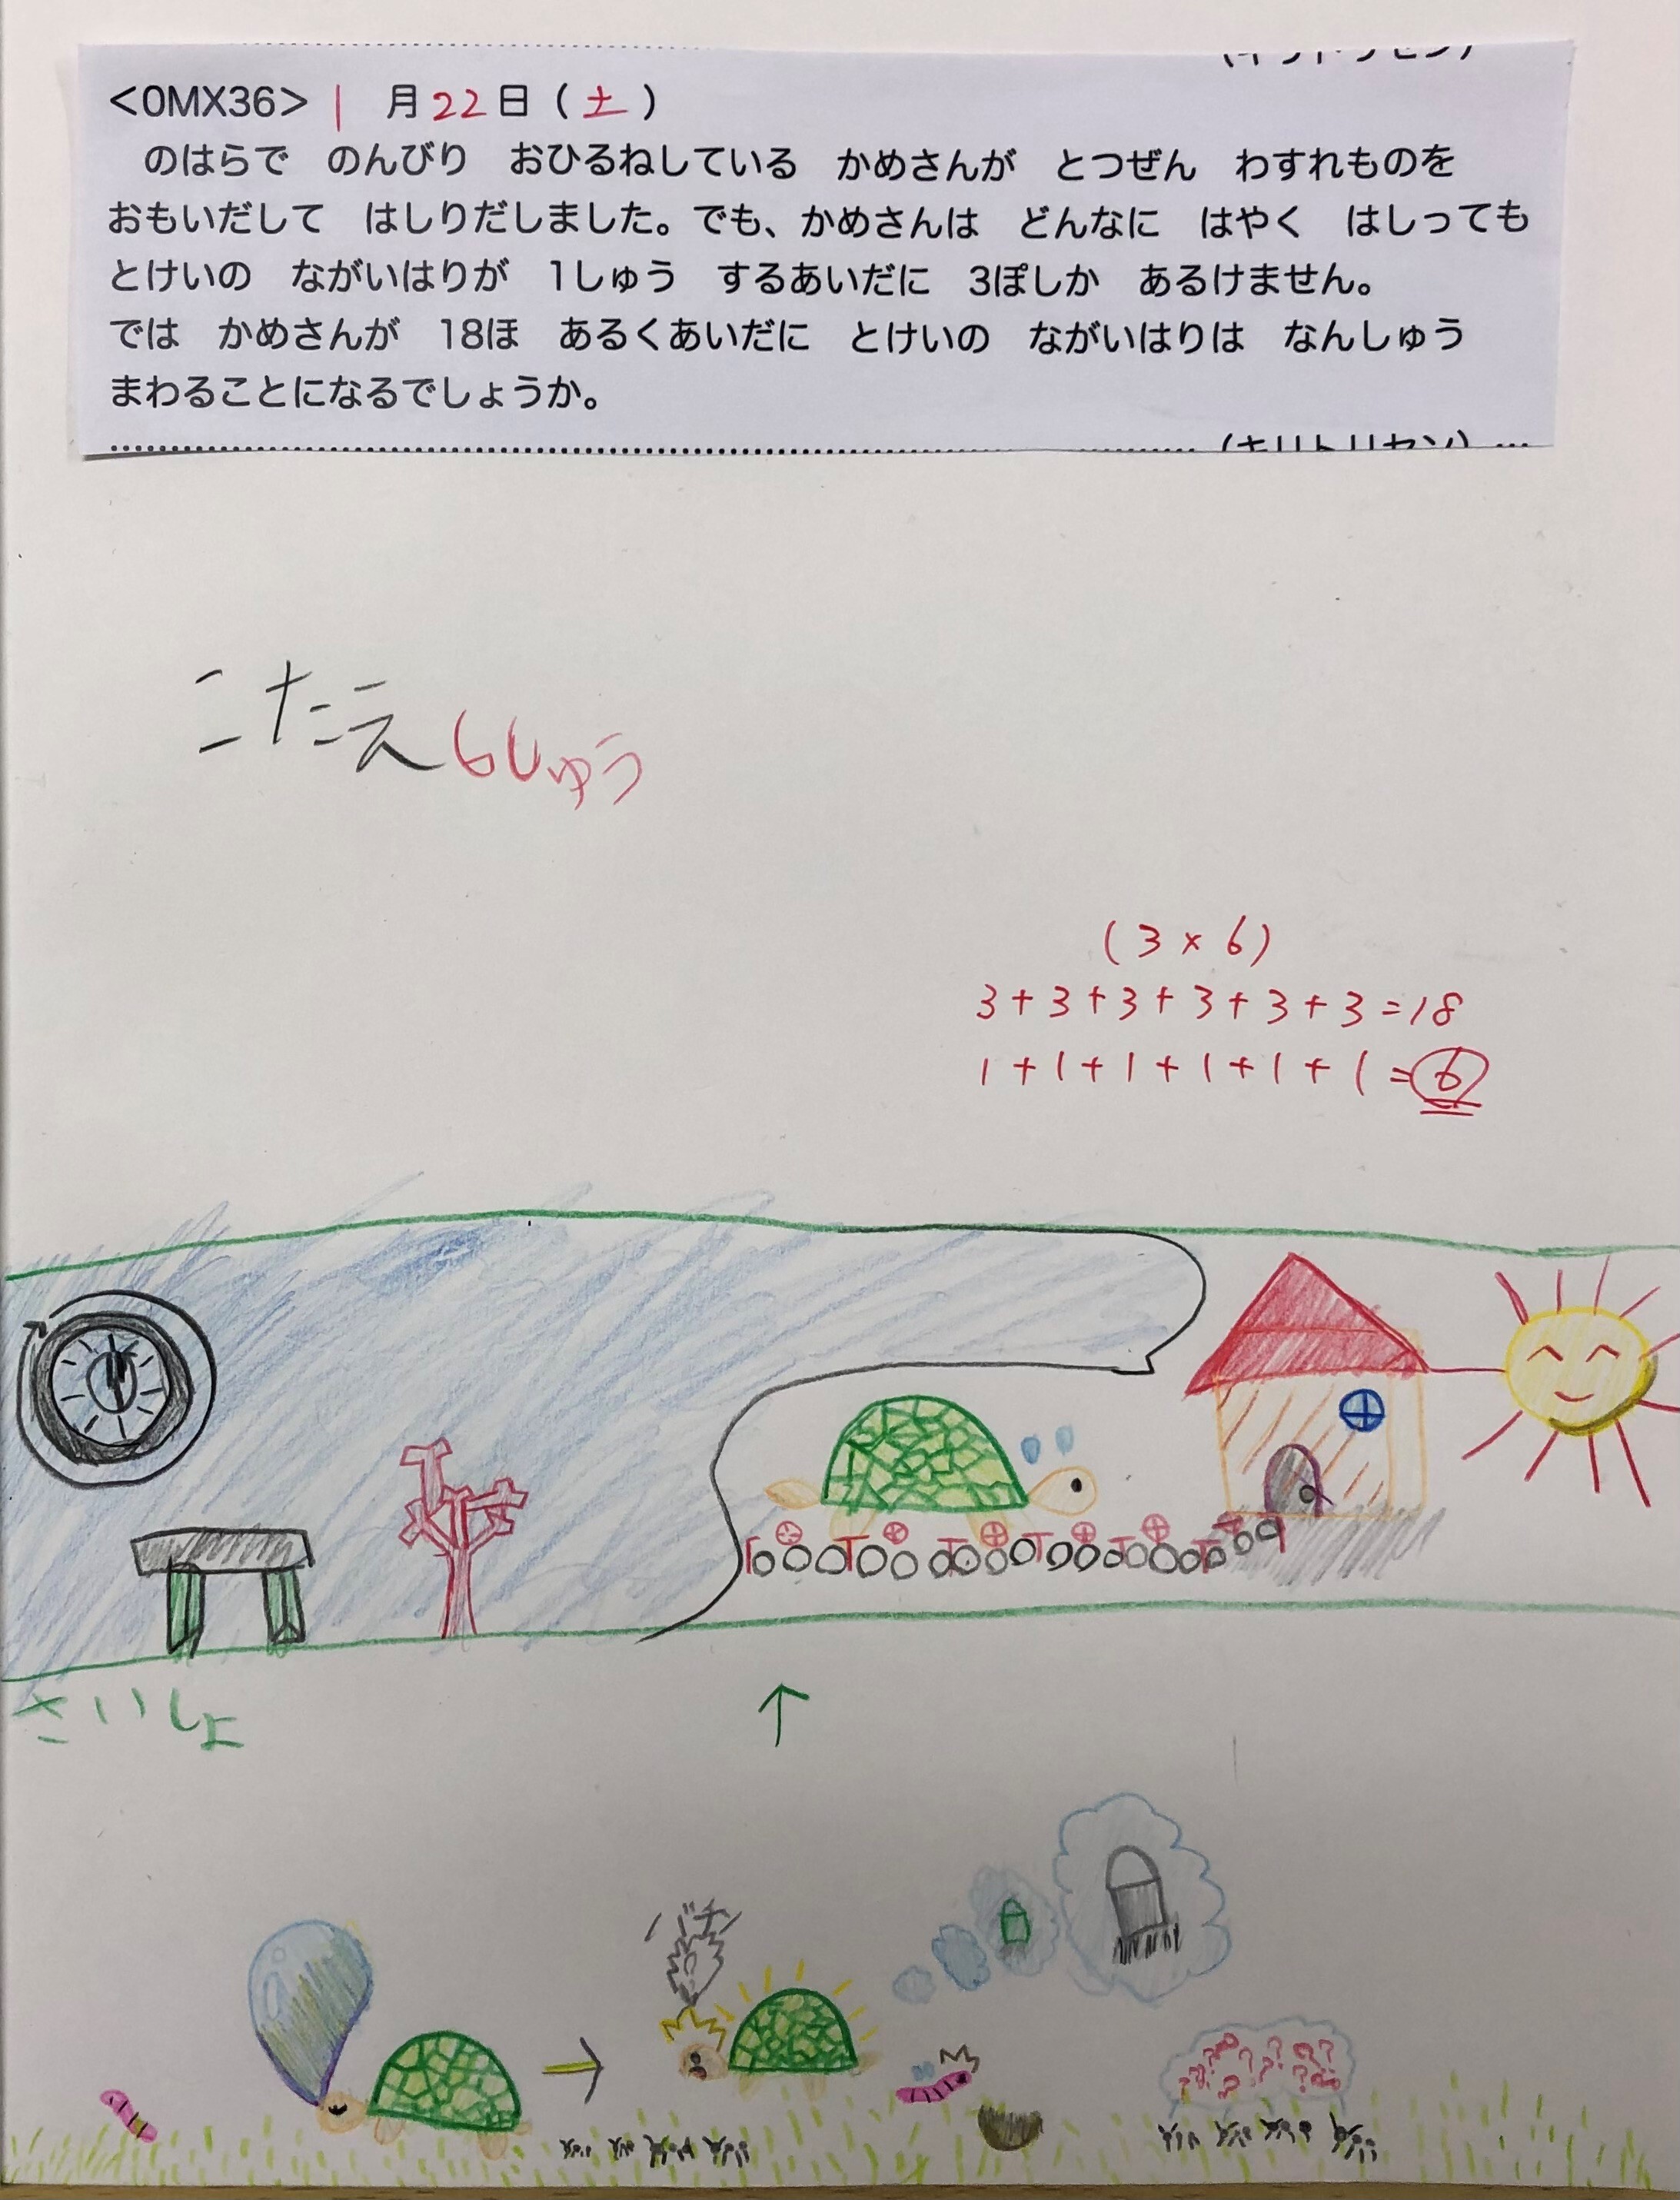 <0MX36> 1 月22日(土)
のはらで のんびり おひるねしている かめさんが とつぜん わすれものを
おもいだして はしりだしました。でも、かめさんは どんなに はやく はしっても
とけいの ながいはりが 1しゅう するあいだに 3ぽしか あるけません。
では かめさんが 18ほ あるくあいだに とけいの ながいはりは なんしゅう
まわることになるでしょうか。
(キリトリセン)
こたえ6しゅう
(3×6)
3+3+3+3+3+3=18
1+1+1+1+1+1=6
さいしょ
↑
パチ